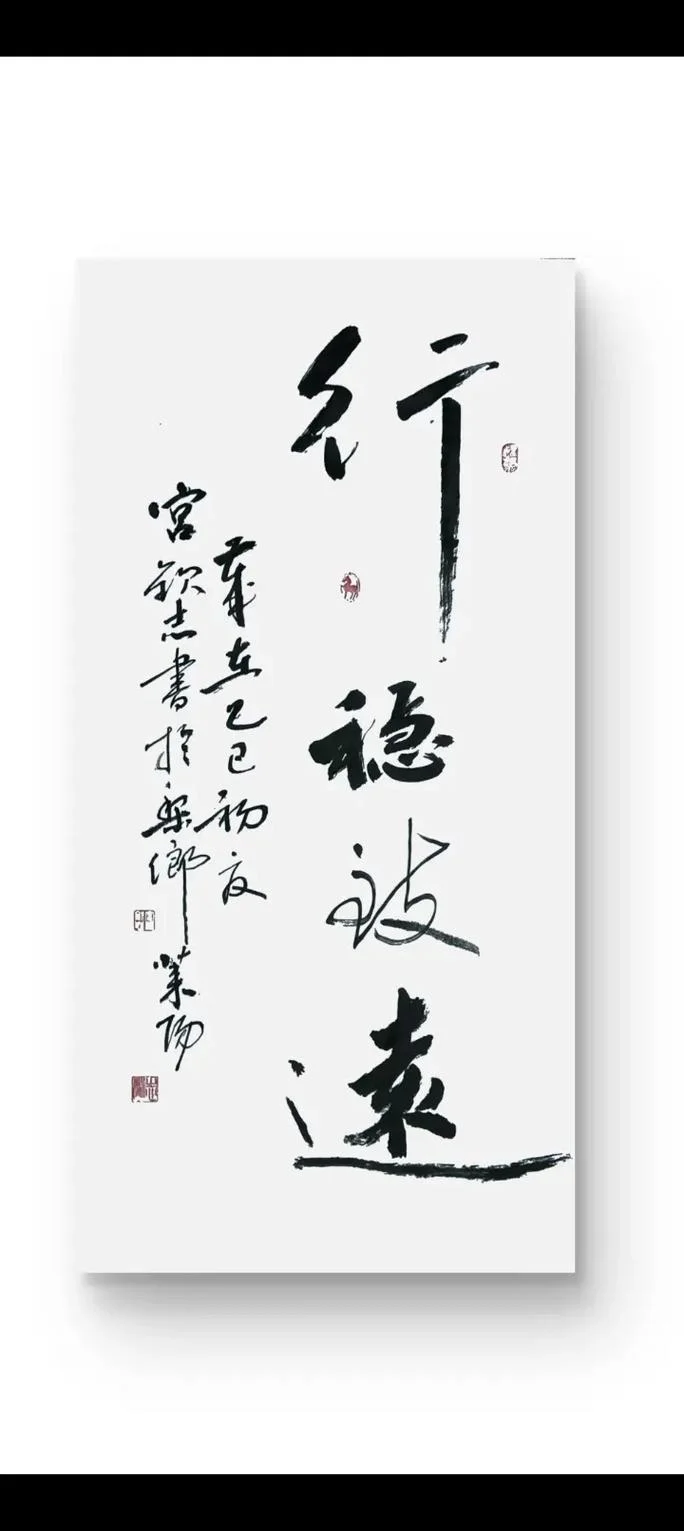 行穩致遠
歲在乙巳初夏
宮欽志書於梨鄉萊陽